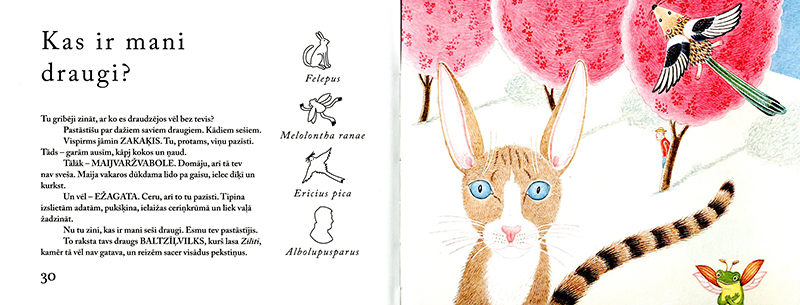 Kas ir mani
draugi?
Tu gribēji zināt, ar ko es draudzējos vēl bez tevis?
Pastāstīšu par dažiem saviem draugiem. Kādiem sešiem.
Vispirms jāmin ZAKAĶIS. Tu, protams, viņu pazīsti.
Tāds – garām ausīm, kāpj kokos un ņaud.
Tālāk – MAIJVARŽVABOLE. Domāju, arī tā tev
nav sveša. Maija vakaros dūkdama lido pa gaisu, ielec dīķī un
kurkst.
Un vēl – EŽAGATA. Ceru, arī to tu pazīsti. Tipina
izslietām adatām, pukšķina, ielaižas ceriņkrūmā un liek vaļā
žadzināt.
Nu tu zini, kas ir mani seši draugi. Esmu tev pastāstījis.
To raksta tavs draugs BALTZIĻVILKS, kurš lasa Zīlīti,
kamēr tā vēl nav gatava, un reizēm sacer visādus pekstiņus.
30
Felepus
Melolontha ranae
Ericius pica
Albolupusparus